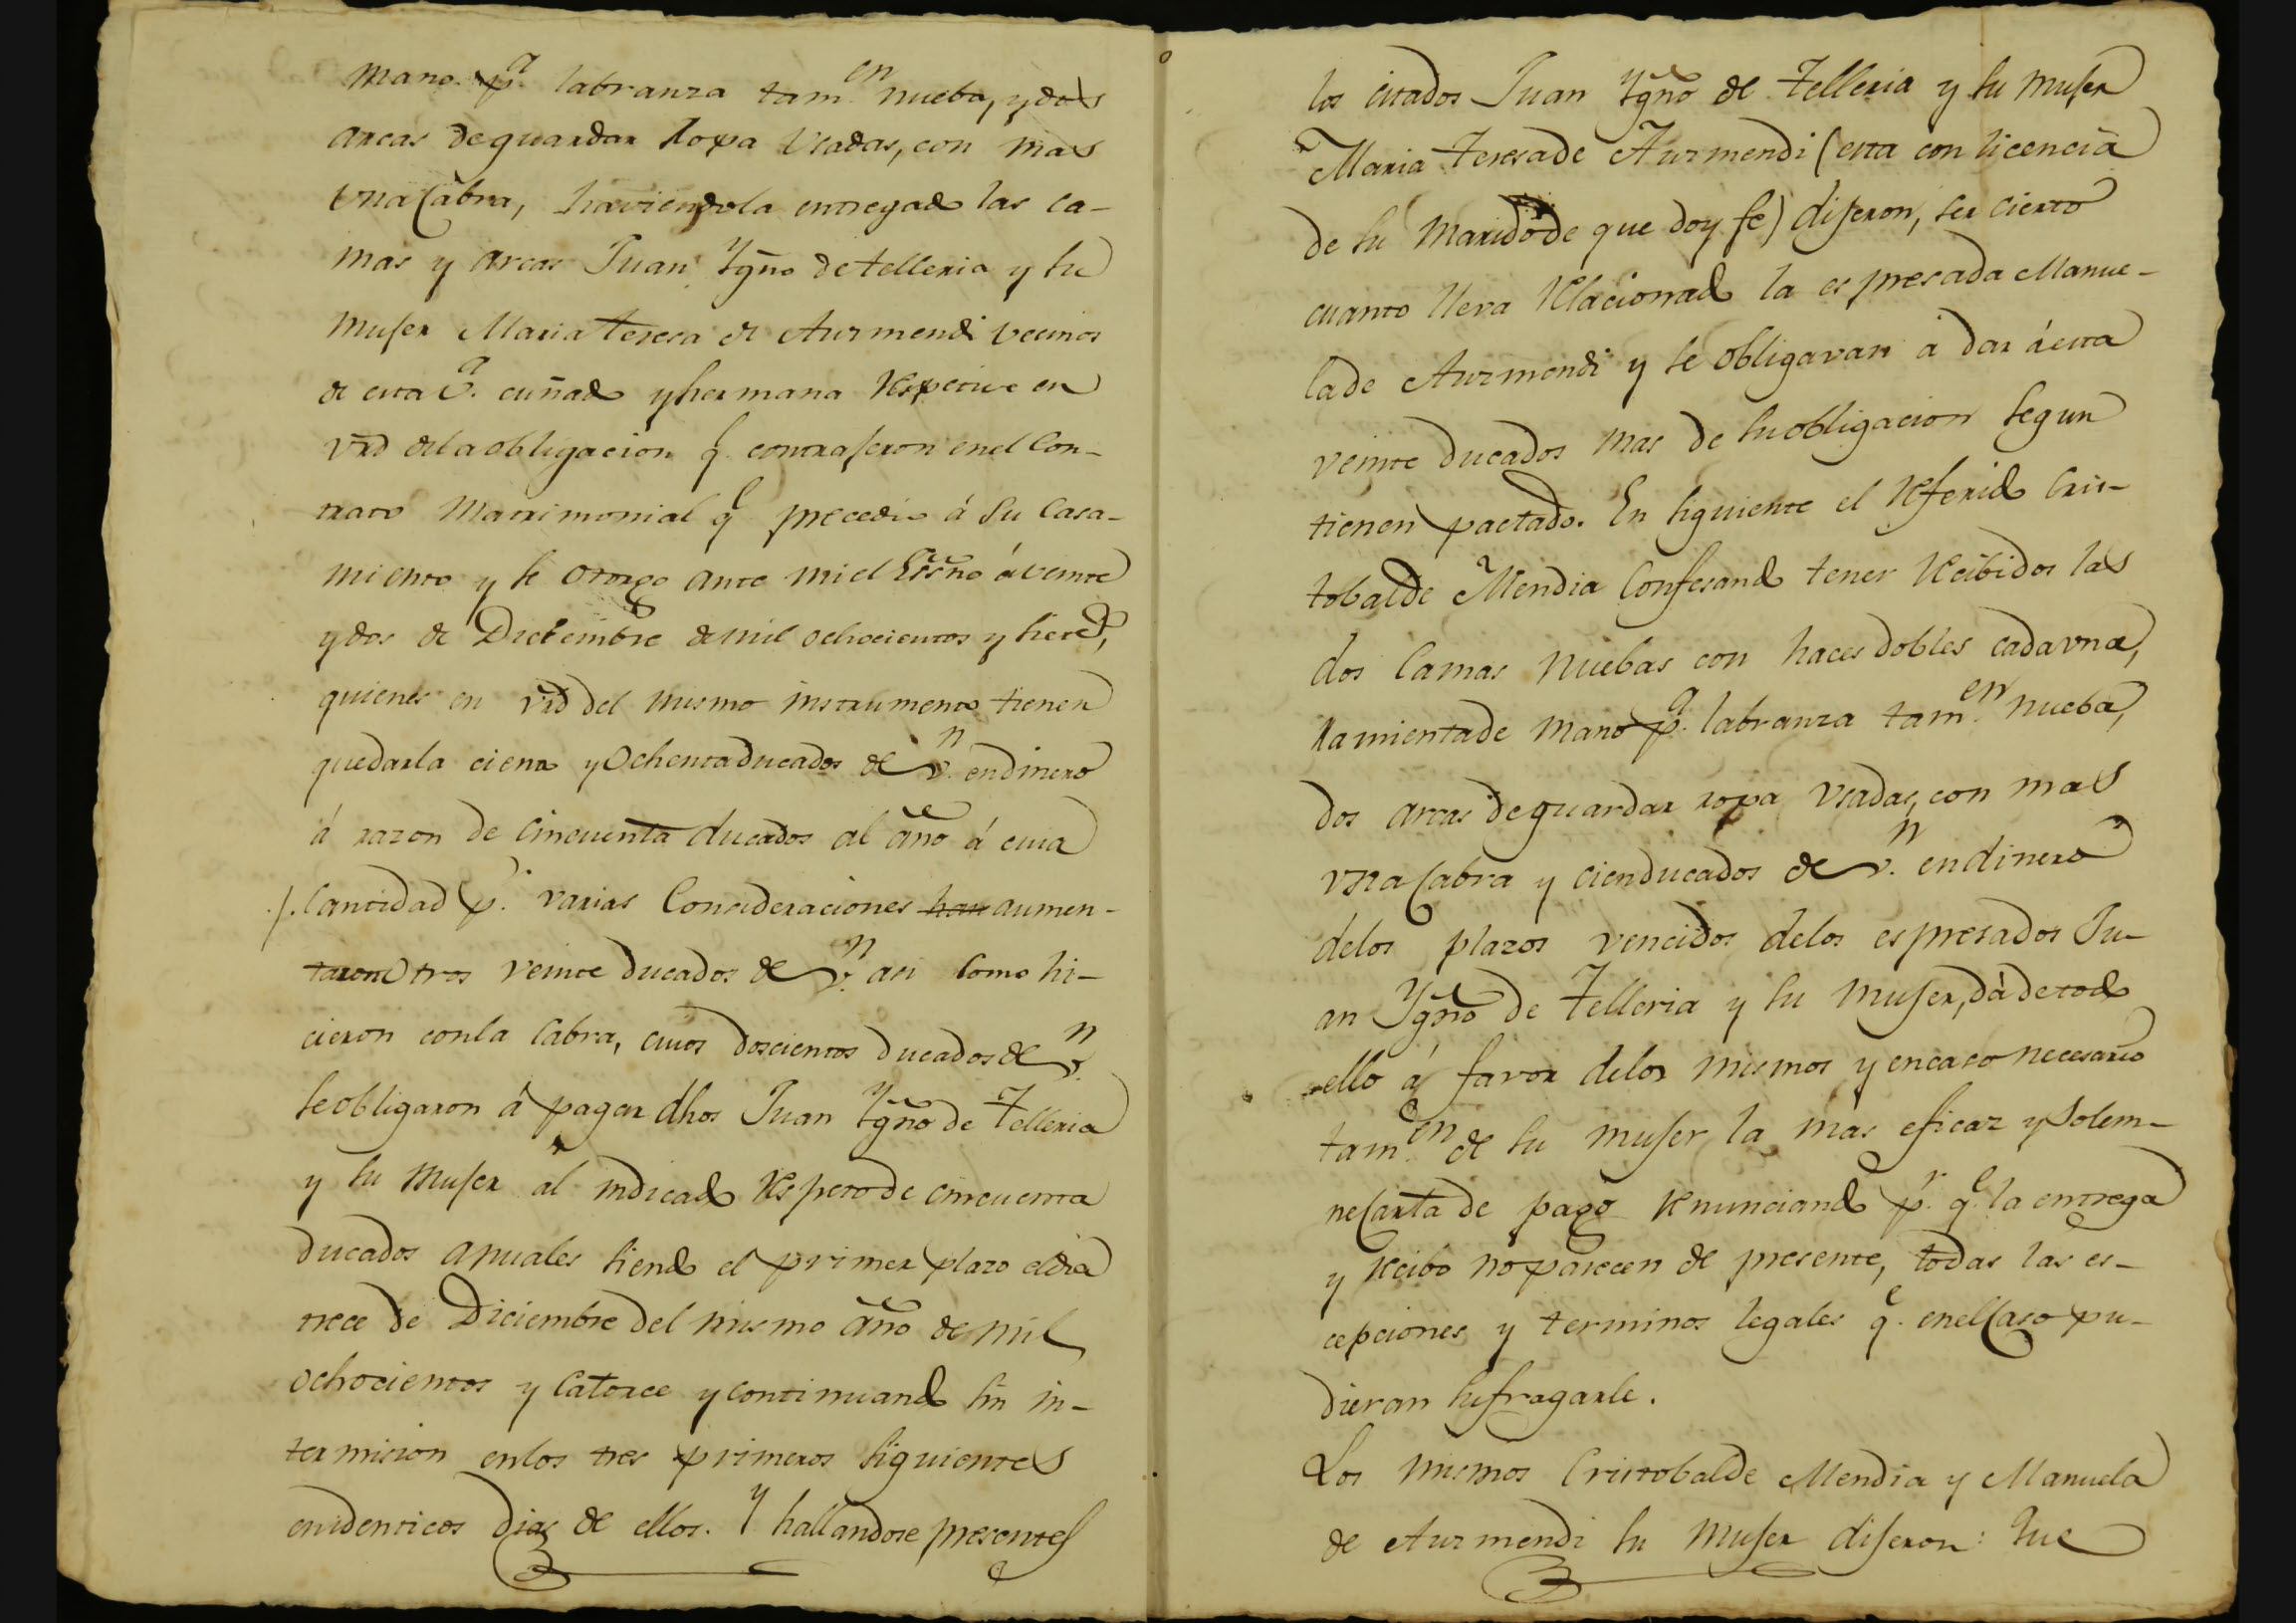 mano pª labranza tamen nueba, y dos
arcas de guardar Ropa Usadas, con mas
una Cabra, haviendola entregado las ca-
mas y arcas Juan Ygño de Telleria y su
Muger Maria Teresa de Aurmendi vecinos
de esta Vª cuñado y hermana Respective en
vrd de la obligacion q contrageron en el Con-
trato Matrimonial q precedio á su Casa-
miento y se otorgo ante mi el Essño á veinte
y dos de Diciembre de mil ochocientos y siete,
quienes en vrd del mismo instrumento tienen
que darla ciento y Ochenta ducados de vn en dinero
á razon de Cincuenta ducados al año á cuia
/. Cantidad pr varias Consideraciones han aumen-
taron Otros veinte ducados de vn asi Como hi-
cieron con la Cabra, cuios doscientos ducados de vn
se obligaron á pagar dhos Juan Ygño de Telleria
y su Muger al indicado Respeto de cincuenta
ducados anuales siendo el primer plazo el dia
trece de Diciembre del mismo año de mil
ochocientos y Catorce y continuando sin in-
termision en los tres primeros siguientes
en identicos dias de ellos. Y hallandose presentes
los citados Juan Ygño de Telleria y su Muger
Maria Teresa de Aurmendi (esta con licencia
de su Marido de que doy fe) digeron, ser cierto
cuanto lleva Relacionado la espresada Manue-
la de Aurmendi y se obligavan á dar á esta
veinte ducados mas de su obligacion segun
tienen pactado. En siguiente el Referido Cris-
tobal de Mendia Confesando tener Recibidos las
dos Camas Nuebas con haces dobles cada una,
Ramienta de mano pª labranza tamen nueba,
dos arcas de guardar ropa Usadas, con mas
una Cabra y cien ducados de vn en dinero
de los plazos vencidos de los espresados Ju-
an Ygño de Telleria y su Muger, dá de todo
ello á favor de los mismos y en caso necesario
tamen de su muger la mas eficaz y Solem-
ne Carta de pago Renunciando pr qe la entrega
y Recibo no parecen de presente, todas las es-
cepciones y terminos legales qe en el Caso pu-
dieran sufragarle.
Los mismos Cristobal de Mendia y Manuela
de Aurmendi su Muger digeron: Que